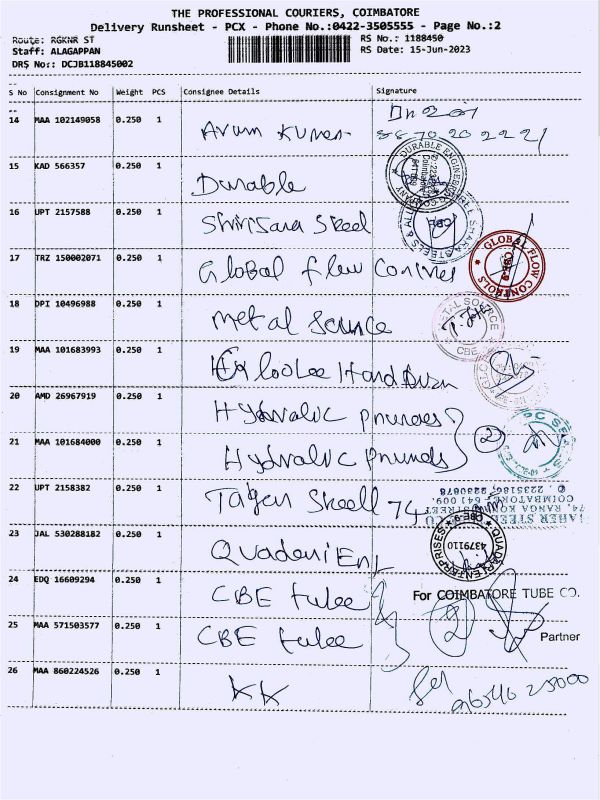 THE PROFESSIONAL COURIERS, COIMBATORE
Delivery Runsheet - PCX - Phone No.:0422-3505555 - Page No.:2
Route: RGKNR ST
RS No.: 1188450
Staff: ALAGAPPAN
RS Date: 15-Jun-2023
DRS No.: DCJB118845002
S No Consignment No Weight PCS Consignee Details Signature
14 MAA 102149058 0.250 1 Arum Kumar
8870202221
15 KAD 566357 0.250 1 Durable
DURABLE ENGINEERING COMPANY
16 UPT 2157588 0.250 1 Steel
CBE
17 TRZ 150002071 0.250 1 Global flow
GLOBAL FLOW CONTROLS
CBE-9
18 DPI 10496988 0.250 1 metal
METAL SOURCE
CBE
19 MAA 101683993 0.250 1
20 AMD 26967919 0.250 1 Hydvalic
21 MAA 101684000 0.250 1 Hydvalic
2
22 UPT 2158382 0.250 1 74
74, RANGA KO STREET
COIMBATORE 641 009.
2235186, 2230878
23 JAL 530288182 0.250 1
QUADRI ENTERPRISES
4379110
CBE-9
24 EDQ 16609294 0.250 1 CBE tube
For COIMBATORE TUBE CO.
25 MAA 571503577 0.250 1 CBE tube
2
Partner
26 MAA 860224526 0.250 1 KK